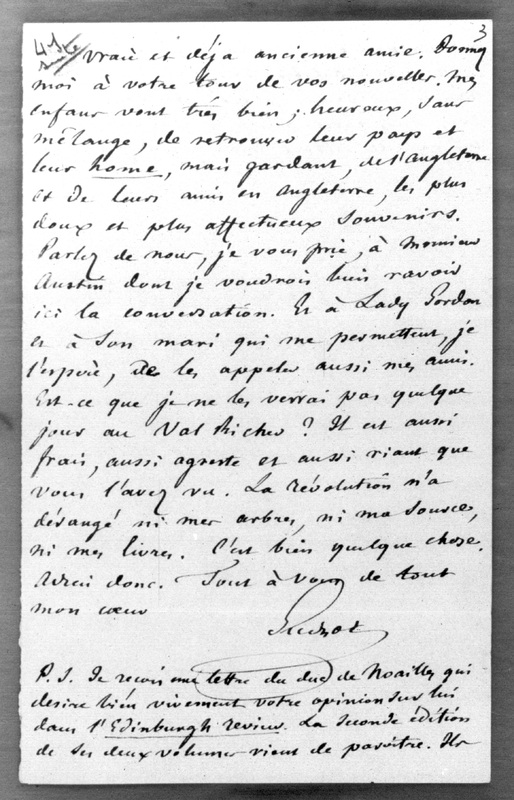 3
vraie et déja ancienne amie. Donnez
moi à votre tour de vos nouvelles. Mes
enfans vont très bien; heureux, sans
mélange, de retrouver leur pays et
leur home, mais gardant, de l'angleterre
et de leurs amis en angleterre, les plus
doux et plus affectueux souvenirs.
Parlez de nous, je vous prie, à Monsieur
Austin dont je voudrois bien ravoir
ici la conversation. Et à Lady Gordon
et à son mari qui me permettent, je
l'espère, de les appeler aussi mes amis.
Est-ce que je ne les verrai pas quelque
jour au Val Richer? Il est aussi
frais, aussi agreste et aussi riant que
vous l'avez vu. La révolution n'a
dérangé ni mes arbres, ni ma source,
ni mes livres. C'est bien quelque chose.
Adieu donc. Tout à vous de tout
mon cœur
Guizot
P.S. Je reçois une lettre du duc de Noailles qui
desire bien vivement votre opinion sur lui
dans l'Edinburgh review. La seconde édition
de ses deux volumes vient de paroitre. Ils